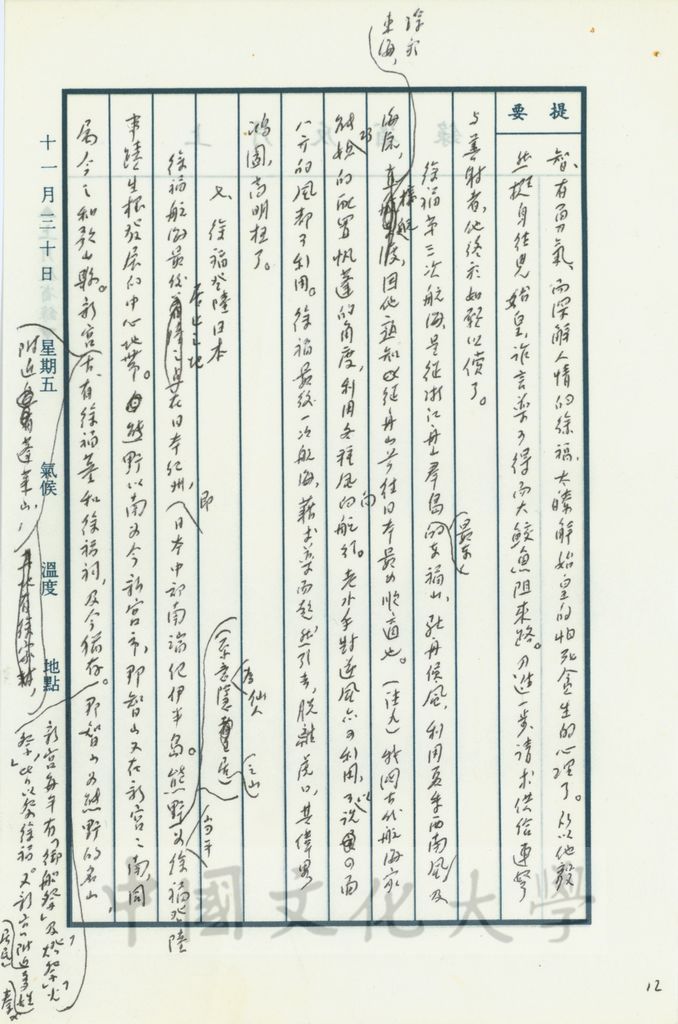 提要
智、有勇氣、而深解人情的徐福,太瞭解始皇的怕死貪生的心理了。所以他敢
挺身往見始皇,詐言藥可得而大鮫魚阻來路。乃進一步請求供給連弩
与善射者,他終於如願以償了。
徐福第三次航海,是從浙江舟山群島的(最東)福山,駐舟候風,利用夏季西南風及
徐家
東海,
海流,直接航渡,因他熟知從舟山等往日本最為順適也。(注九)我國古代航海家
的配置帆蓬的角度,利用各種風向的航行。老水手對逆風亦可利用,可以說四面
八方的風都可利用。徐福最後一次航海,藉求藥而超然引去,脫離虎口,其偉略
鴻圖,高明極了。
七、徐福登陸日本
徐福航海最後居止之地在日本紀州,即(日本中部南端紀伊半島。熊野為徐福登陸
(原意隱居仙人之山)
當年
半陸生根發展的中心地帶。熊野以南為今新宮市,那智山又在新宮之南,同
屬今之和歌山縣。新宮古有徐福墓和徐福祠,及今猶存。那智山為熊野的名山
附近有蓬萊山,
新宮每年有「御船祭」及「燈祭」
祭」,皆以祭徐福。又新宮附近
居民
十一月三十日
星期五
氣候
溫度
地點
中國文化大學
12